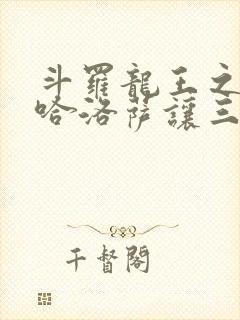 斗羅龍王之
哈洛薩讓三
千督閣